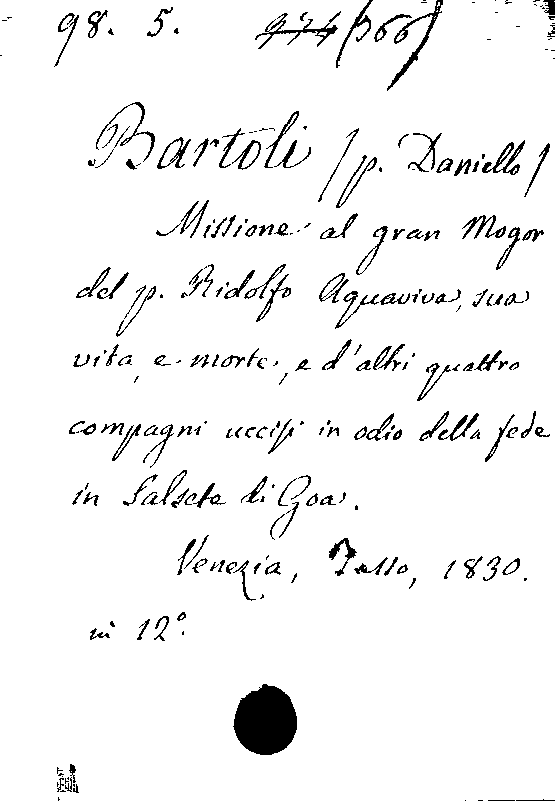 98. 5. 974 (366)
Bartoli (p. Daniello)
Missione al gran Mogor
del p. Ridolfo Aquaviva, sua
vita, e morte, e d'altri quattro
compagni uccisi in odio della fede
in Salsete di Goa.
Venezia, Tasso, 1830.
in 12°.